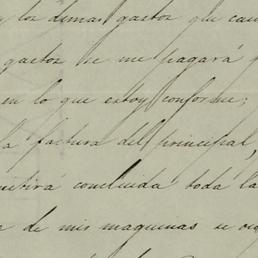 los demas gastos que
gastos se me pagará
en lo que estoy conforme;
la factura del principal,
concluida toda la
de mis maquinas se